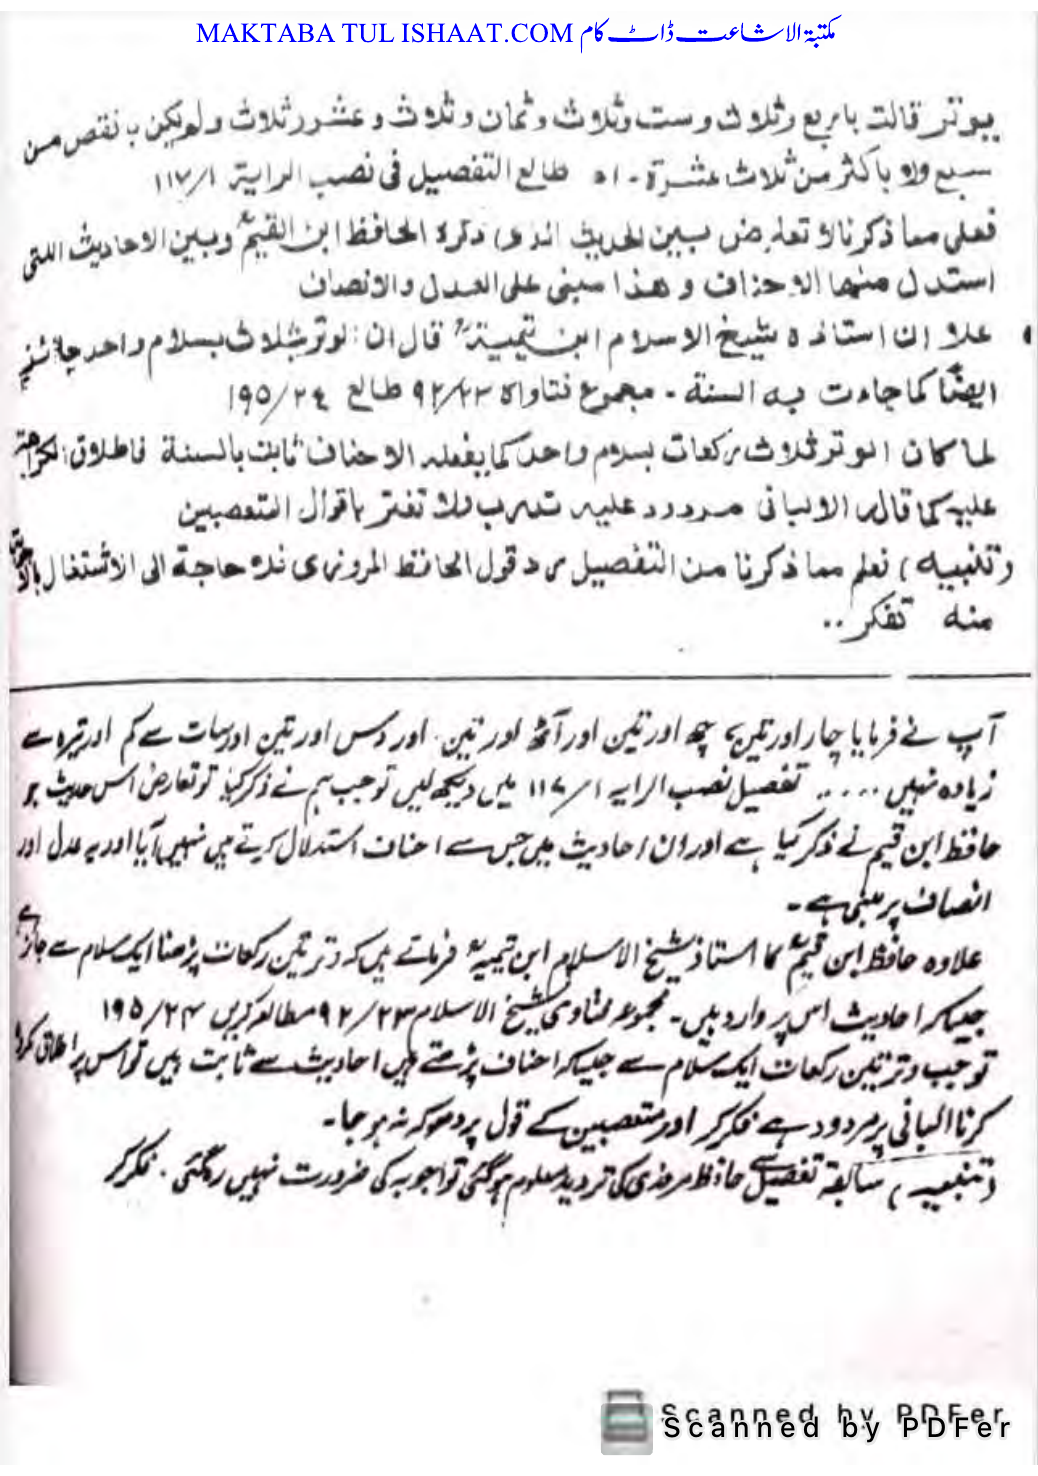 MAKTABA TUL ISHAAT.COM مکتبۃ الاشاعت ڈاٹ کام
يوتر قالت بأربع وثلاث وست وثلاث وثمان وثلاث وعشر وثلاث ولم يكن بأنقص من
سبع ولا بأكثر من ثلاث عشرة - اھ طالع التفصيل فى نصب الراية ١١٧/١
فعلى ما ذكرنا لا تعارض بين الحديث الذى ذكره الحافظ ابن القيمؒ وبين الاحاديث اللتى
استدل منها الاحناف و هذا مبنى على العدل والانصاف
علا ان استاذه شيخ الاسلام ابن تيميةؒ قال ان الوتر بثلاث بسلام واحد جائز
ايضًا كما جاءت به السنة - مجموع فتاواه ٩٢/٢٣ طالع ١٩٥/٢٤
لما كان الوتر ثلاث ركعات بسلام واحد كما يفعله الاحناف ثابت بالسنة فاطلاق الكراهة
عليه كما قاله الالبانى مردود عليه تدرب ولا تغتر باقوال المتعصبين
(تنبيه) فعلم مما ذكرنا من التفصيل رد قول الحافظ المروزى فلا حاجة الى الاشتغال
منه تفكر..
آپ نے فرمایا چار اور تین چھ اور تین اور آٹھ اور تین اور دس اور تین اور سات سے کم اور تیرہ سے
زیادہ نہیں ..... تفصیل نصب الرایہ ۱۱۷/۱ میں دیکھ لیں تو جب ہم نے ذکر کیا تو تعارض اس حدیث جو
حافظ ابن قیم نے ذکر کیا ہے اور ان احادیث میں جس سے احناف استدلال کرتے ہیں نہیں آیا اور یہ عدل اور
انصاف پر مبنی ہے۔
علاوہ حافظ ابن قیمؒ کا استاذ شیخ الاسلام ابن تیمیہؒ فرماتے ہیں کہ وتر تین رکعات پڑھنا ایک سلام سے جائز ہے
جیسا کہ احادیث اس پر وارد ہیں۔ مجموعہ فتاوی شیخ الاسلام ۹۲/۲۳ مطالعہ کریں ۱۹۵/۲۴
تو جب وتر تین رکعات ایک سلام سے جیسا کہ احناف پڑھتے ہیں احادیث سے ثابت ہیں تو اس پر اطلاق
کرنا البانی پر مردود ہے فکر کر اور متعصبین کے قول پر دھوکہ نہ ہو جا۔
(تنبیہ) سابقہ تفصیل سے حافظ مروزی کی تردید معلوم ہو گئی تو اجوبہ کی ضرورت نہیں رہ گئی. فکر کر
Scanned by PDFer
Scanned by PDFer